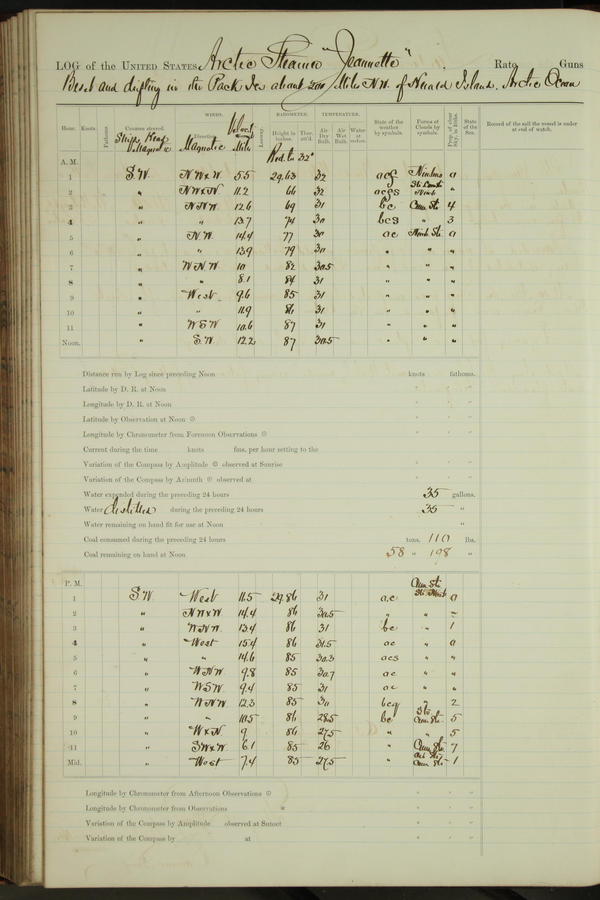 LOG of the UNITED STATES Arctic Steamer "Jeannette" Rate Guns
Beset and drifting in the Pack Ice about 200 Miles NW. of Herald Island. Arctic Ocean
Hour. Knots. Fathoms. Courses steered. WINDS. Leeway. BAROMETER. TEMPERATURE. State of the weather by symbols. Forms of Clouds by symbols. Prop. of clear Sky, in 10ths. State of the Sea. Record of the sail the vessel is under at end of watch.
Ships Head Magnetic Direction Magnetic Velocity Miles Height in inches. Ther. att'd. Air Dry Bulb. Air Wet Bulb. Water at surface.
Red. to 32°
A. M.
1 S.W. NW x W 5.5 29.63 32 acf Nimbus 0
2 " NW x N 11.2 66 32 acfs 0
3 " NNW 12.6 69 31 bc Cum Str 4
4 " " 13.7 74 30 bcs " 3
5 " N.W. 14.4 77 30 ac Nimb Str 0
6 " " 13.9 79 30 " " "
7 " WNW 10 82 30.5 " " "
8 " " 8.1 84 31 " " "
9 " West 9.6 85 31 " " "
10 " " 11.9 86 31 " " "
11 " WSW 10.6 87 31 " " "
Noon. " S.W. 12.2 87 30.5 " " "
Distance run by Log since preceding Noon knots fathoms.
Latitude by D. R. at Noon ° ' "
Longitude by D. R. at Noon ° ' "
Latitude by Observation at Noon ° ' "
Longitude by Chronometer from Forenoon Observations ° ' "
Current during the time knots fms. per hour setting to the
Variation of the Compass by Amplitude observed at Sunrise ° ' "
Variation of the Compass by Azimuth observed at ° ' "
Water expended during the preceding 24 hours 35 gallons.
Water distilled during the preceding 24 hours 35 "
Water remaining on hand fit for use at Noon "
Coal consumed during the preceding 24 hours tons, 110 lbs.
Coal remaining on hand at Noon 58 " 198 "
P. M.
1 S.W. West 11.5 29.86 31 ac Cum Str 0
2 " NW x W 14.4 86 30.5 " " "
3 " WNW 13.4 86 31 bc " 1
4 " West 15.4 86 31.5 ac " 0
5 " " 14.6 85 30.3 acs " "
6 " WNW 9.8 85 30.7 ac " "
7 " WSW 9.4 85 31 ac " "
8 " WNW 12.3 85 30 bcq " 2
9 " " 10.5 86 28.5 bc Cum Str 5
10 " W x N 9 86 27.5 " " 5
11 " SW x W 6.1 85 26 " Cum Str 7
Mid. " West 7.4 85 27.5 " Cum Str 1
Longitude by Chronometer from Afternoon Observations ° ' "
Longitude by Chronometer from Observations ° ' "
Variation of the Compass by Amplitude observed at Sunset ° ' "
Variation of the Compass by at ° ' "